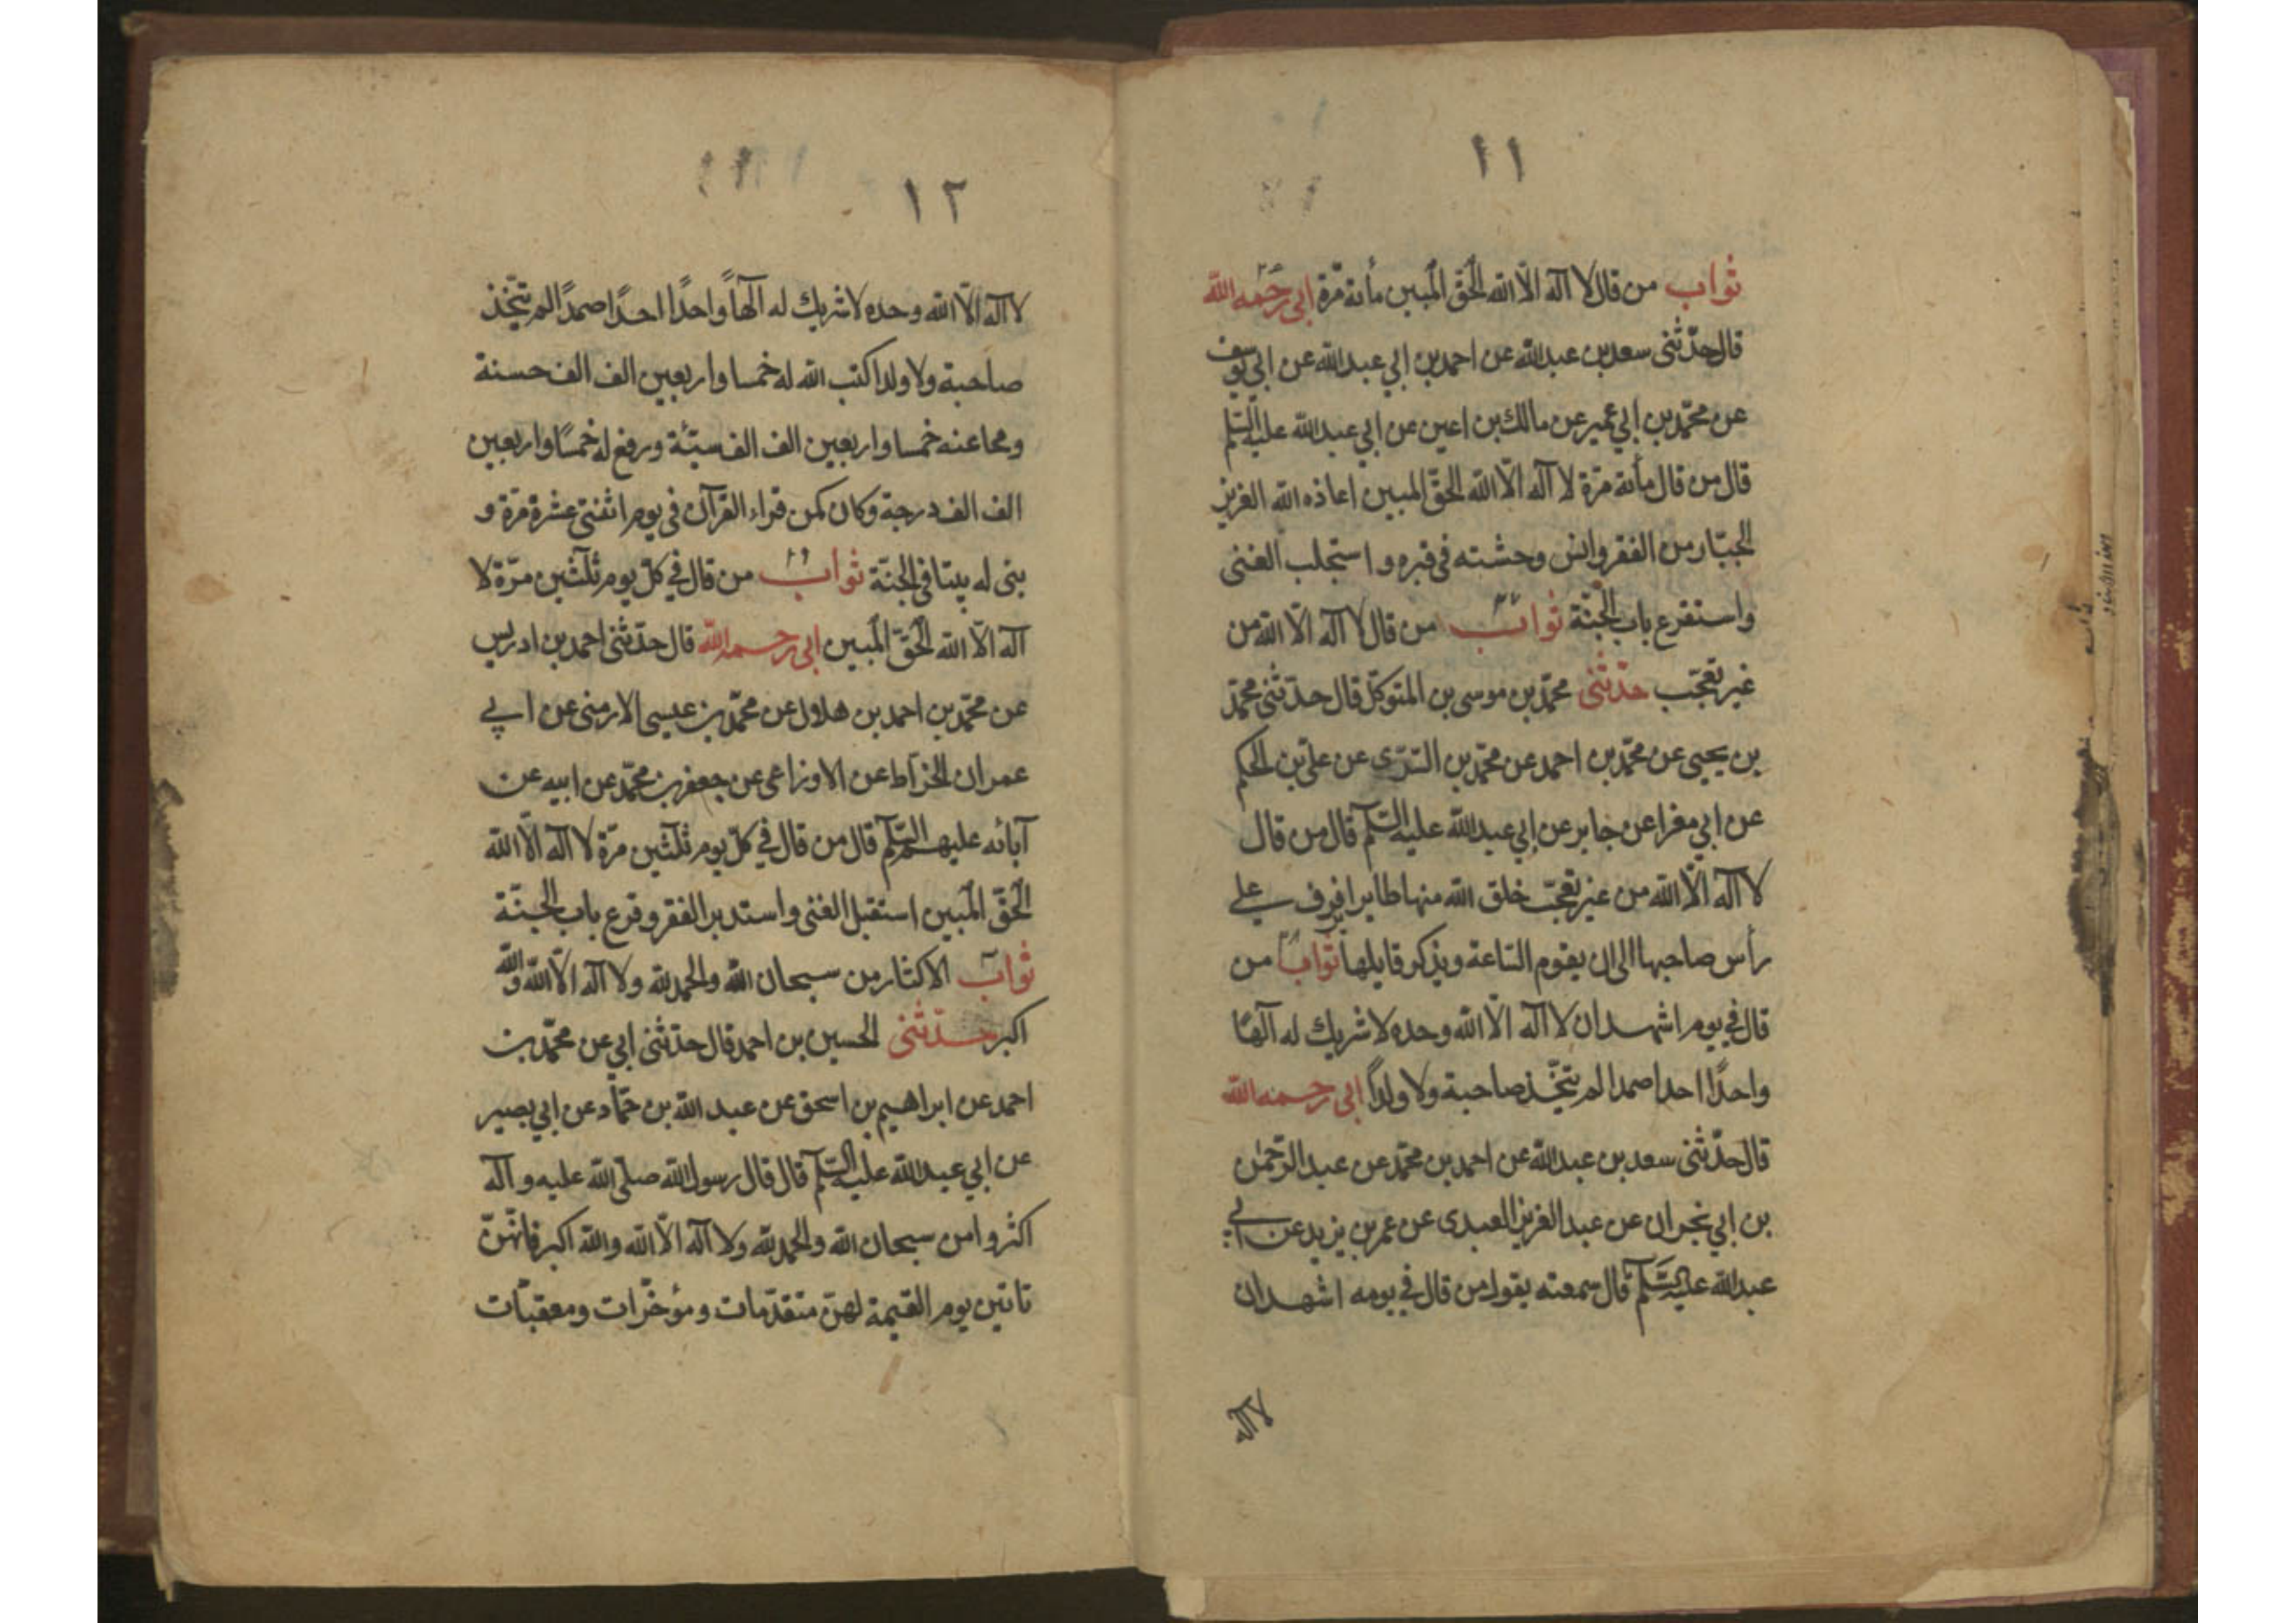 ١١
ثواب من قال لا اله الّا الله الحَقّ المُبين مأئة مَرّة ابى رَحمه الله
قال حدّثنى سعد بن عبد الله عن احمد بن ابي عبد الله عن ابي يوسف
عن محمّد بن ابي عمير عن مالك بن اعين عن ابي عبد الله عليه السّلم
قال من قال مأئة مرّة لا اله الّا الله الحقّ المبين اعاذه الله العزيز
الجبّار من الفقر وانس وحشته فى قبره و استجلب الغنى
واستقرع باب الجنّة ثواب من قال لا اله الّا الله من
غير تعجّب حدّثنى محمّد بن موسى بن المتوكّل قال حدّثنى محمّد
بن يحيى عن محمّد بن احمد عن محمّد بن السّرّى عن علىّ بن الحكم
عن ابي مغرا عن جابر عن ابي عبد الله عليه السّلم قال من قال
لا اله الّا الله من غير تعجّب خلق الله منها طايرا يرفرف على
رأس صاحبها الى ان يقوم السّاعة ويذكر قايلها ثواب من
قال في يوم اشهد ان لا اله الّا الله وحده لا شريك له الهًا
واحدًا احدا صمدا لم يتّخذ صاحبة ولا ولدًا ابى رحمه الله
قال حدّثنى سعد بن عبد الله عن احمد بن محمّد عن عبد الرّحمٰن
بن ابي نجران عن عبد العزيز العبدى عن عمر بن يزيد عن ابي
عبد الله عليه السّلم قال سمعته يقول من قال في يومه اشهد ان
لا اله
١٢
لا اله الّا الله وحده لا شريك له الهاً واحدًا احدًا صمدًا لم يتّخذ
صاحبة ولا ولدا كتب الله له خمسا واربعين الف الف حسنة
ومحا عنه خمسا واربعين الف الف سيّئة ورفع له خمسًا واربعين
الف الف درجة وكان كمن قراء القرآن فى يوم اثنتى عشرة مرّة و
بنى له بيتا فى الجنّة ثواب من قال في كلّ يوم ثلٰثين مرّة لا
اله الّا الله الحَقّ المُبين ابى رحمه الله قال حدّثنى احمد بن ادريس
عن محمّد بن احمد بن هلال عن محمّد بن عيسى الارمنى عن ابي
عمران الخرّاط عن الاوزاعى عن جعفر بن محمّد عن ابيه عن
آبائه عليهم السّلم قال من قال في كلّ يوم ثلٰثين مرّة لا اله الّا الله
الحَقّ المُبين استقبل الغنى واستدبر الفقر وقرع باب الجنّة
ثواب الاكثار من سبحان الله والحمد لله ولا اله الّا الله والله
اكبر حدّثنى الحسين بن احمد قال حدّثنى ابي عن محمّد بن
احمد عن ابراهيم بن اسحق عن عبد الله بن حمّاد عن ابي بصير
عن ابي عبد الله عليه السّلم قال قال رسول الله صلّى الله عليه و آله
اكثروا من سبحان الله والحمد لله ولا اله الّا الله والله اكبر فانّهنّ
تاتين يوم القيمة لهنّ متقدّمات ومؤخّرات ومعقبّات